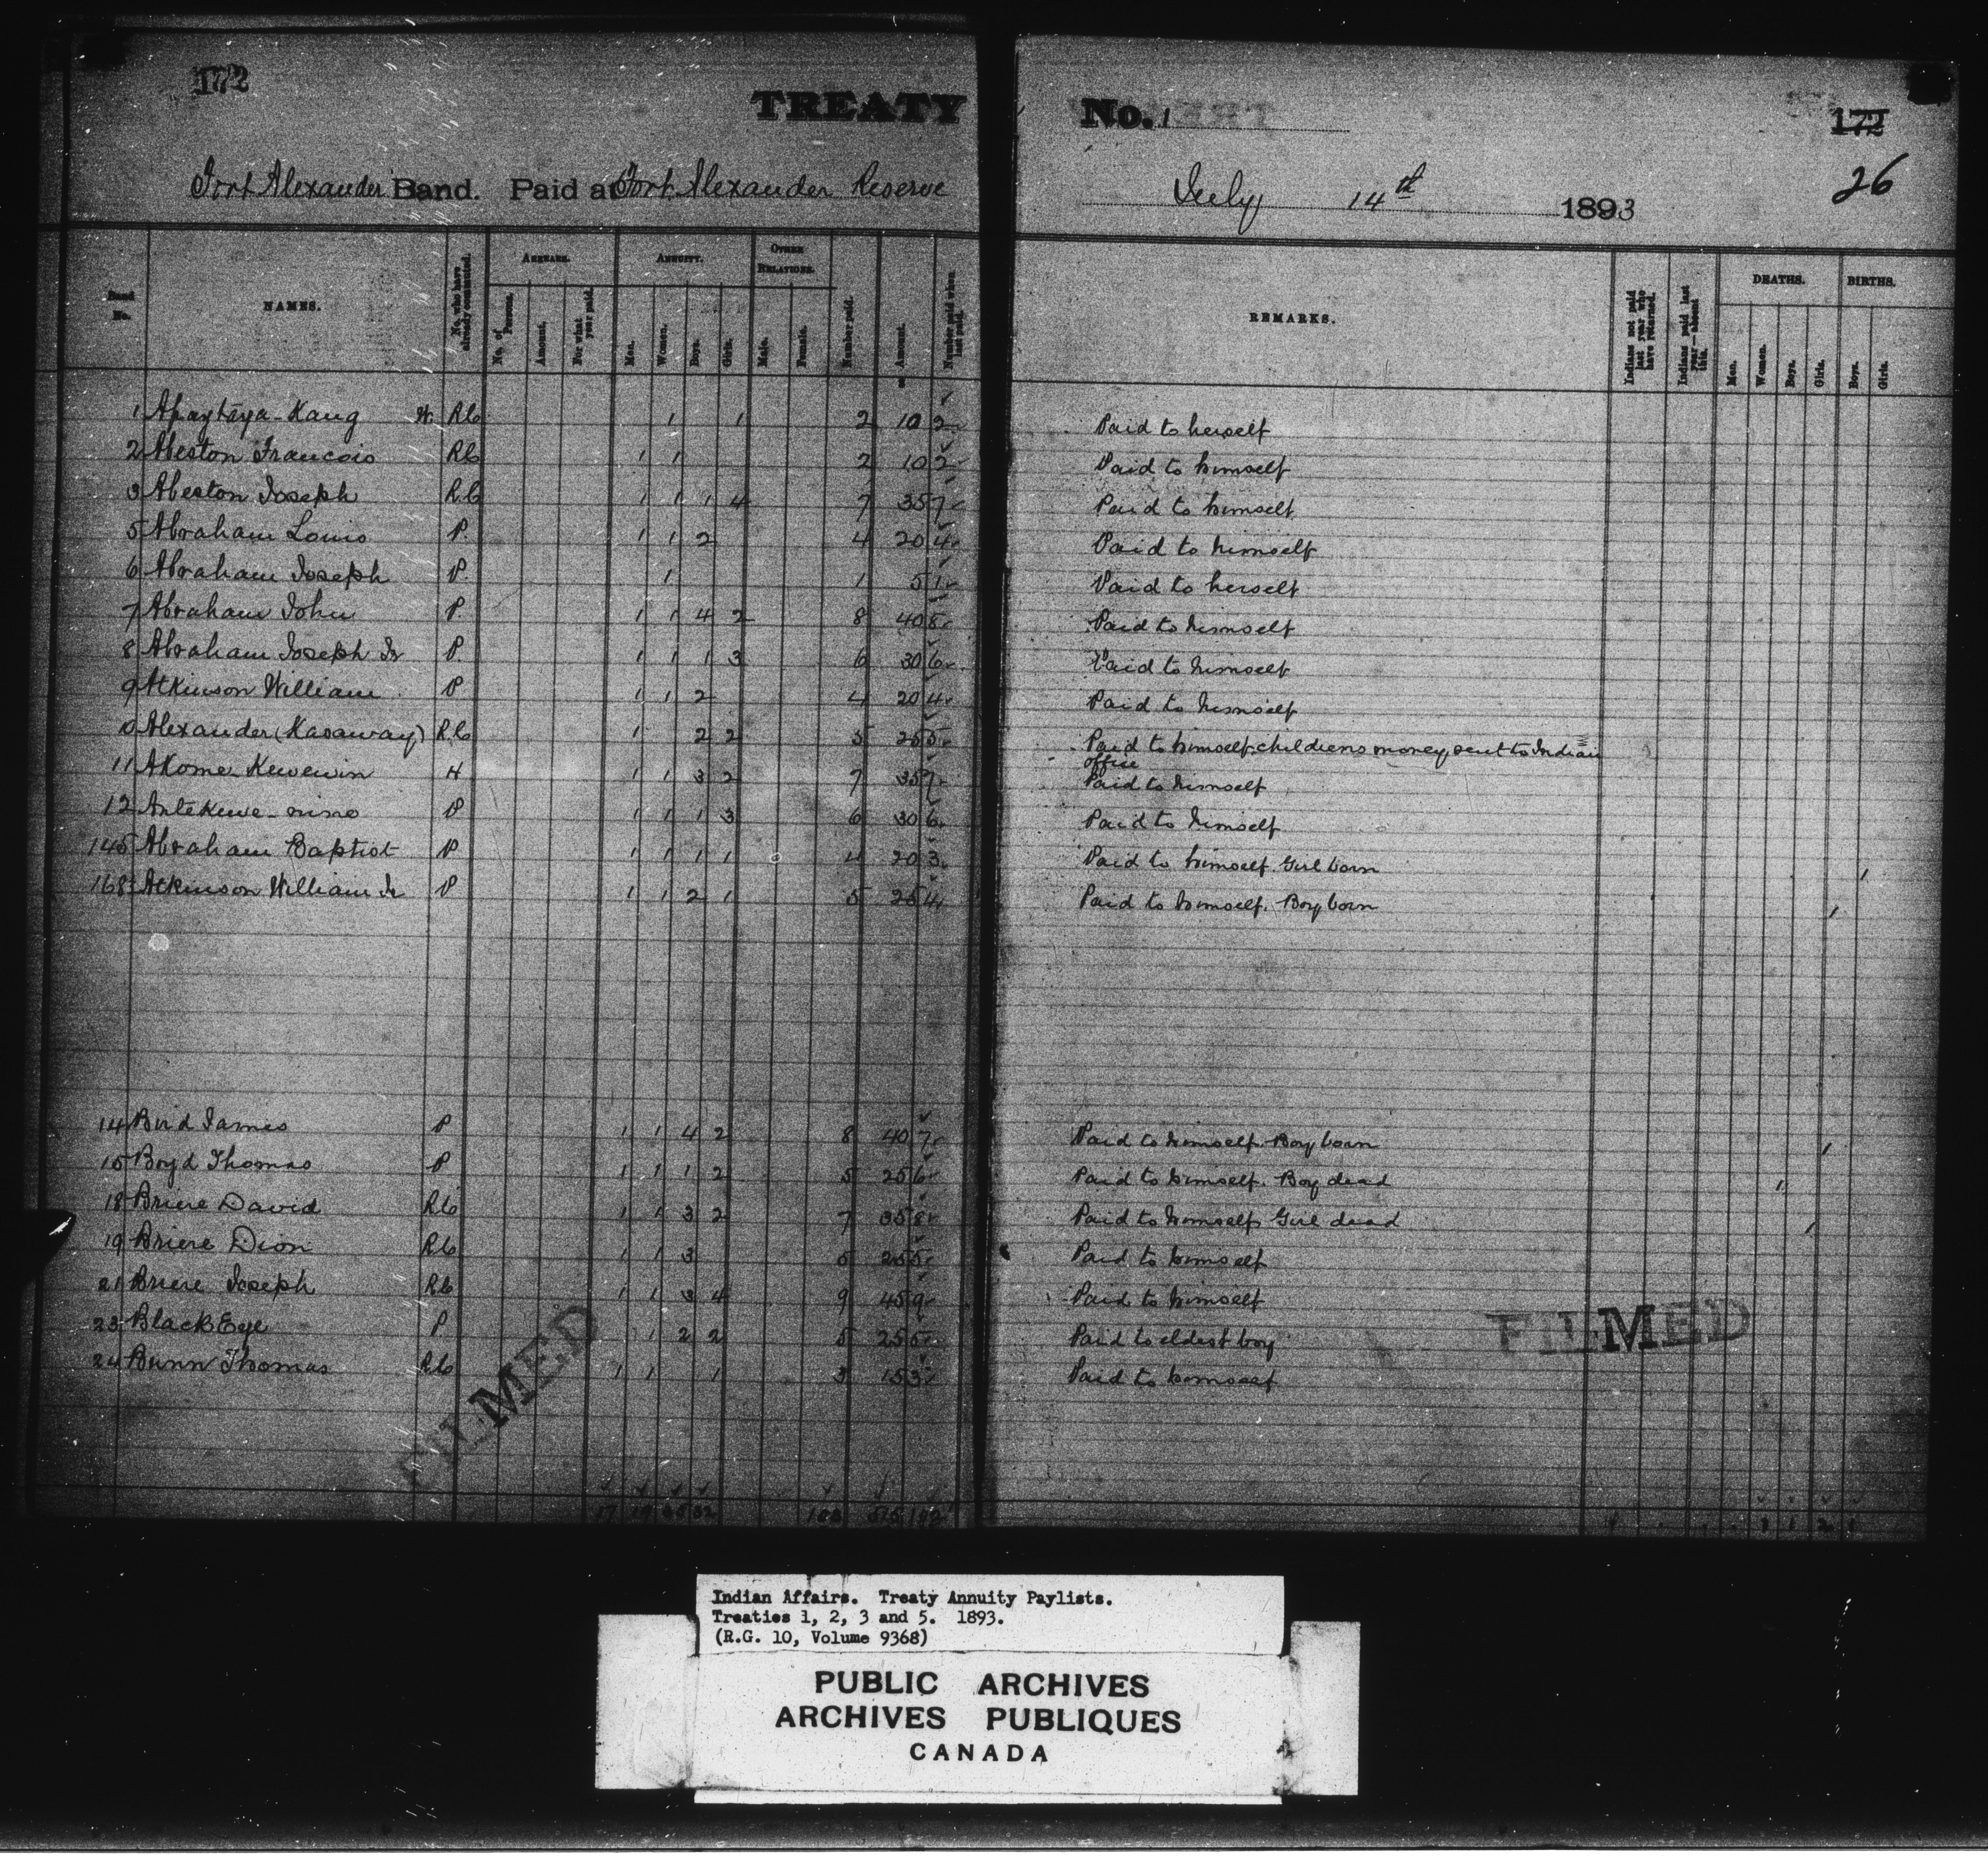 172
TREATY No. 1
172
26
Fort Alexander Band. Paid at Fort Alexander Reserve July 14th 1893
Band No. NAMES. No. who have already commuted. ARREARS. No. of Persons. Amount. For what year paid. ANNUITY. Men. Women. Boys. Girls. OTHER RELATIONS. Male. Female. Number paid. Amount. Number paid when last paid. REMARKS. Indians not paid last year who have returned. Indians paid last year—absent this. DEATHS. Men. Women. Boys. Girls. BIRTHS. Boys. Girls.
1 W. RC 1 1 2 10 2 Paid to herself
2 Abeston Francois RC 1 1 2 10 2 Paid to himself
3 Abeston Joseph RC 1 1 1 4 7 35 7 Paid to himself
5 Abraham Louis P. 1 1 2 4 20 4 Paid to himself
6 Abraham Joseph P. 1 1 5 1 Paid to herself
7 Abraham John P. 1 1 4 2 8 40 8 Paid to himself
8 Abraham Joseph Jr P. 1 1 1 3 6 30 6 Paid to himself
9 Atkinson William P 1 1 2 4 20 4 Paid to himself
10 Alexander (Kasaway) RC 1 2 2 5 25 5 Paid to himself, childrens money sent to Indian
office
11 Akome Kewewin H 1 1 3 2 7 35 7 Paid to himself
12 P 1 1 1 3 6 30 6 Paid to himself
145 Abraham Baptist P 1 1 1 1 4 20 3 Paid to himself. Girl born 1
168 Atkinson William Jr P 1 1 2 1 5 25 4 Paid to himself. Boy born 1
14 Bird James P 1 1 4 2 8 40 7 Paid to himself. Boy born 1
15 Boyd Thomas P 1 1 1 2 5 25 6 Paid to himself. Boy dead 1
18 Briere David RC 1 1 3 2 7 35 8 Paid to himself Girl dead 1
19 Briere Dion RC 1 1 3 5 25 5 Paid to himself
21 Briere Joseph RC 1 1 3 4 9 45 9 Paid to himself
23 Black Eye P 1 2 2 5 25 5 Paid to eldest boy
24 Bunn Thomas RC 1 1 1 3 15 3 Paid to himself
FILMED
FILMED
17 19 35 32 103 515 102
Indian Affairs. Treaty Annuity Paylists.
Treaties 1, 2, 3 and 5. 1893.
(R.G. 10, Volume 9368)
PUBLIC ARCHIVES
ARCHIVES PUBLIQUES
CANADA